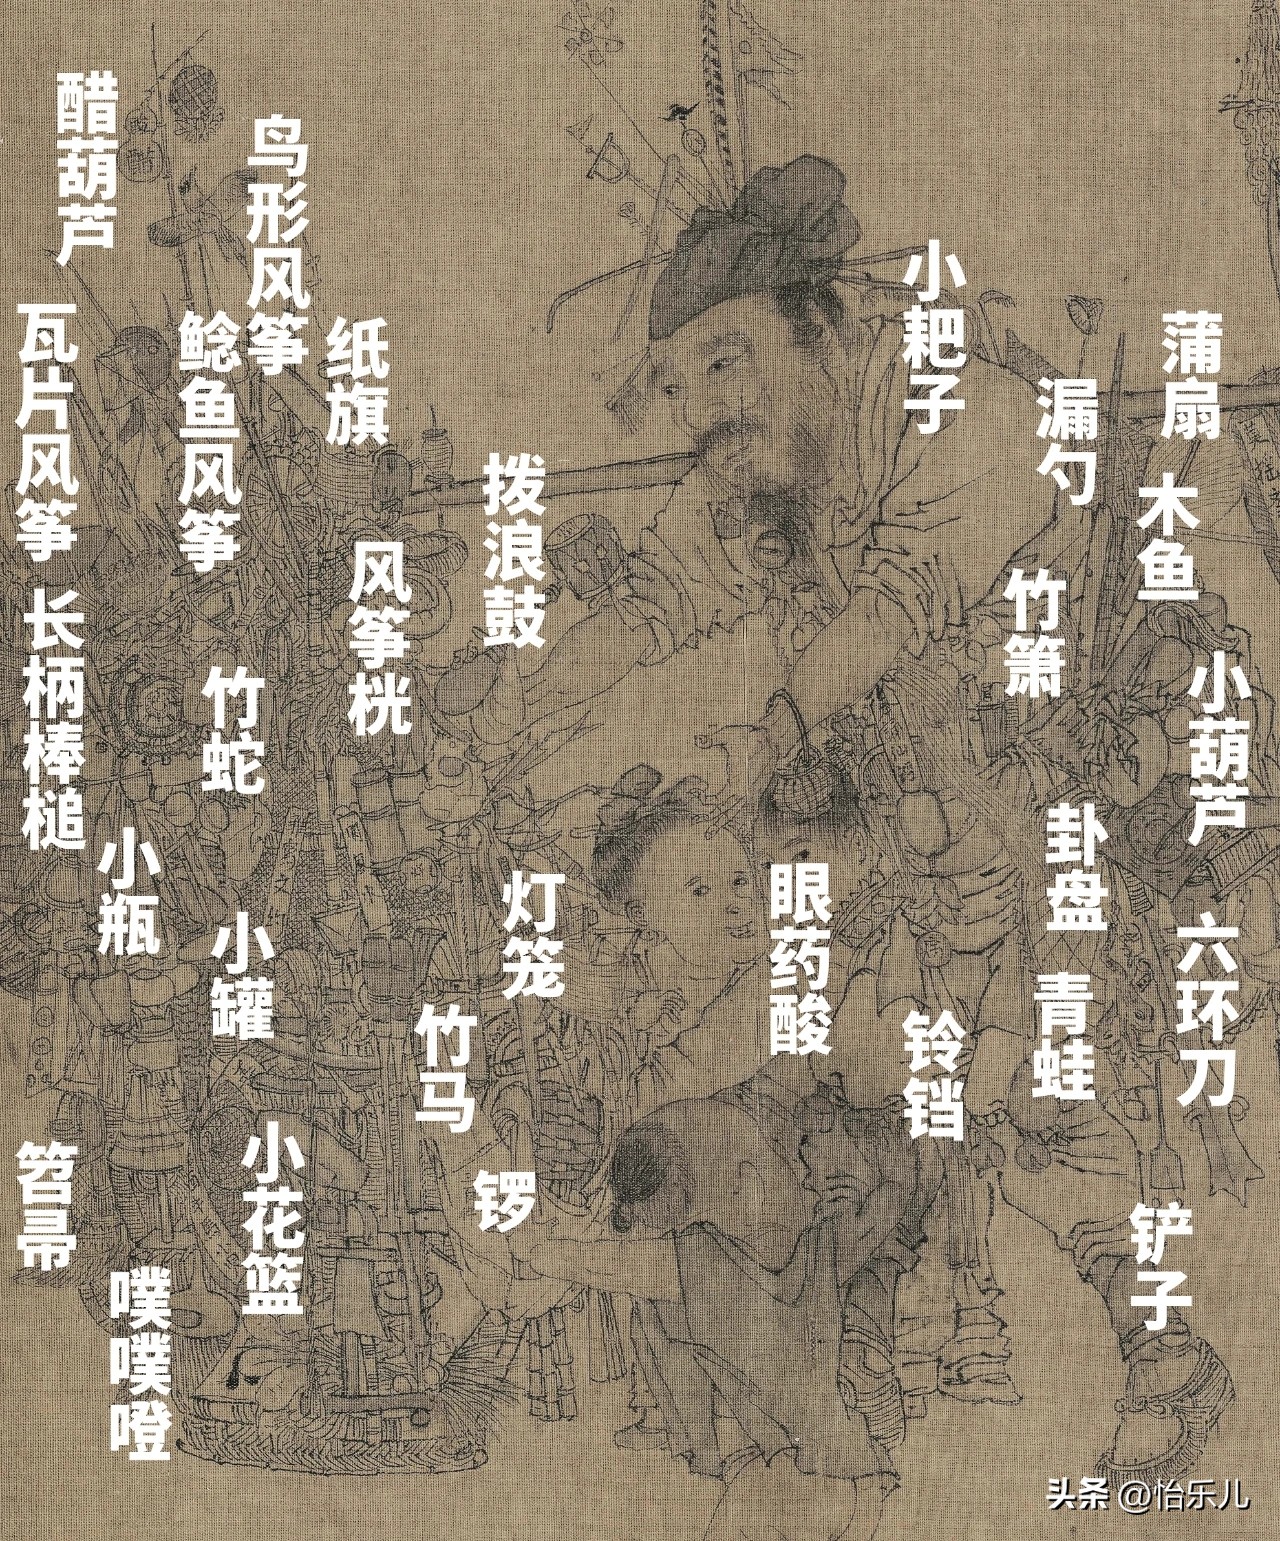 醋葫芦
鸟形风筝
瓦片风筝
鲶鱼风筝
纸旗
小耙子
蒲扇
漏勺
拨浪鼓
木鱼
风筝桄
竹箫
长柄棒槌
竹蛇
小葫芦
小瓶
卦盘
眼药酸
灯笼
小罐
六环刀
青蛙
竹马
铃铛
笤帚
小花篮
锣
铲子
噗噗噔
头条 @怡乐儿